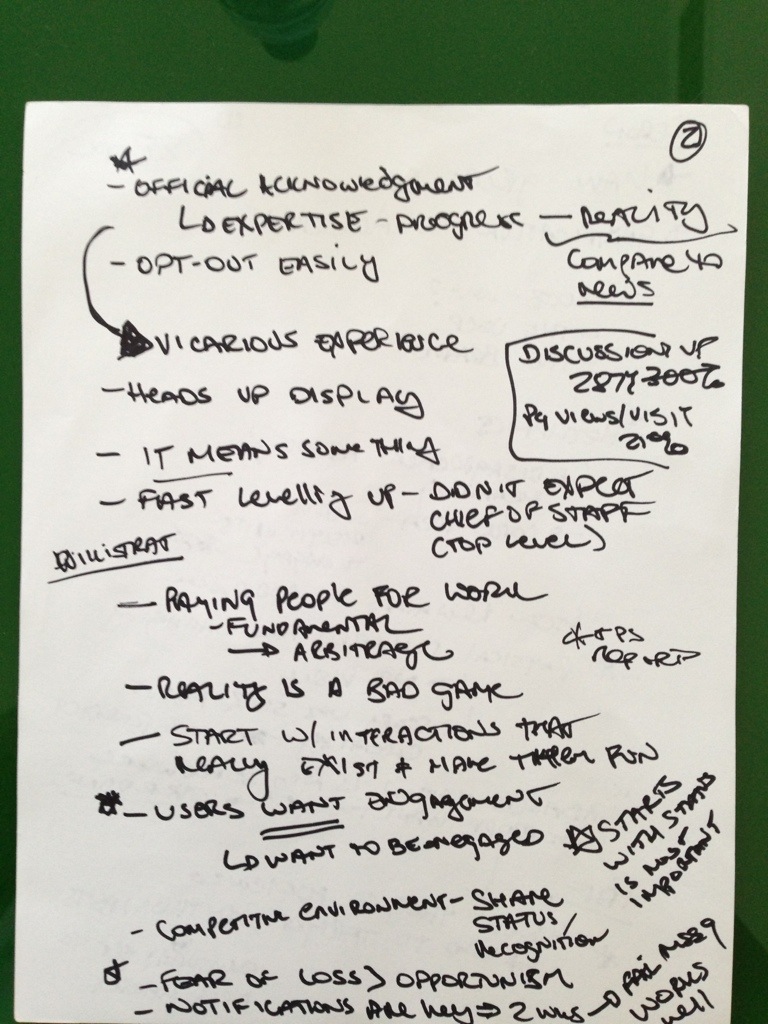 2
- OFFICIAL ACKNOWLEDGMENT
↳ EXPERTISE - PROGRESS — REALITY
COMPARE TO
NEWS
- OPT-OUT EASILY
VICARIOUS EXPERIENCE
DISCUSSION UP
287% 300%
PG VIEWS/VISIT
21%
- HEADS UP DISPLAY
- IT MEANS SOMETHING
- FAST LEVELLING UP - DIDN'T EXPECT
CHIEF OF STAFF
(TOP LEVEL)
- PAYING PEOPLE FOR WORK
- FUNDAMENTAL
→ ARBITRAGE
* TPS
REPORT
- REALITY IS A BAD GAME
- START W/ INTERACTIONS THAT
REALLY EXIST + MAKE THEM FUN
* - USERS WANT ENGAGEMENT
↳ WANT TO BE ENGAGED
☆ STARTS
WITH STATUS
IS MOST
IMPORTANT
- COMPETITIVE ENVIRONMENT - SHARE
STATUS/
RECOGNITION
- FEAR OF LOSS > OPPORTUNISM
- NOTIFICATIONS ARE KEY ⇒ 2 WKS → FAIL MSG
WORKS
WELL